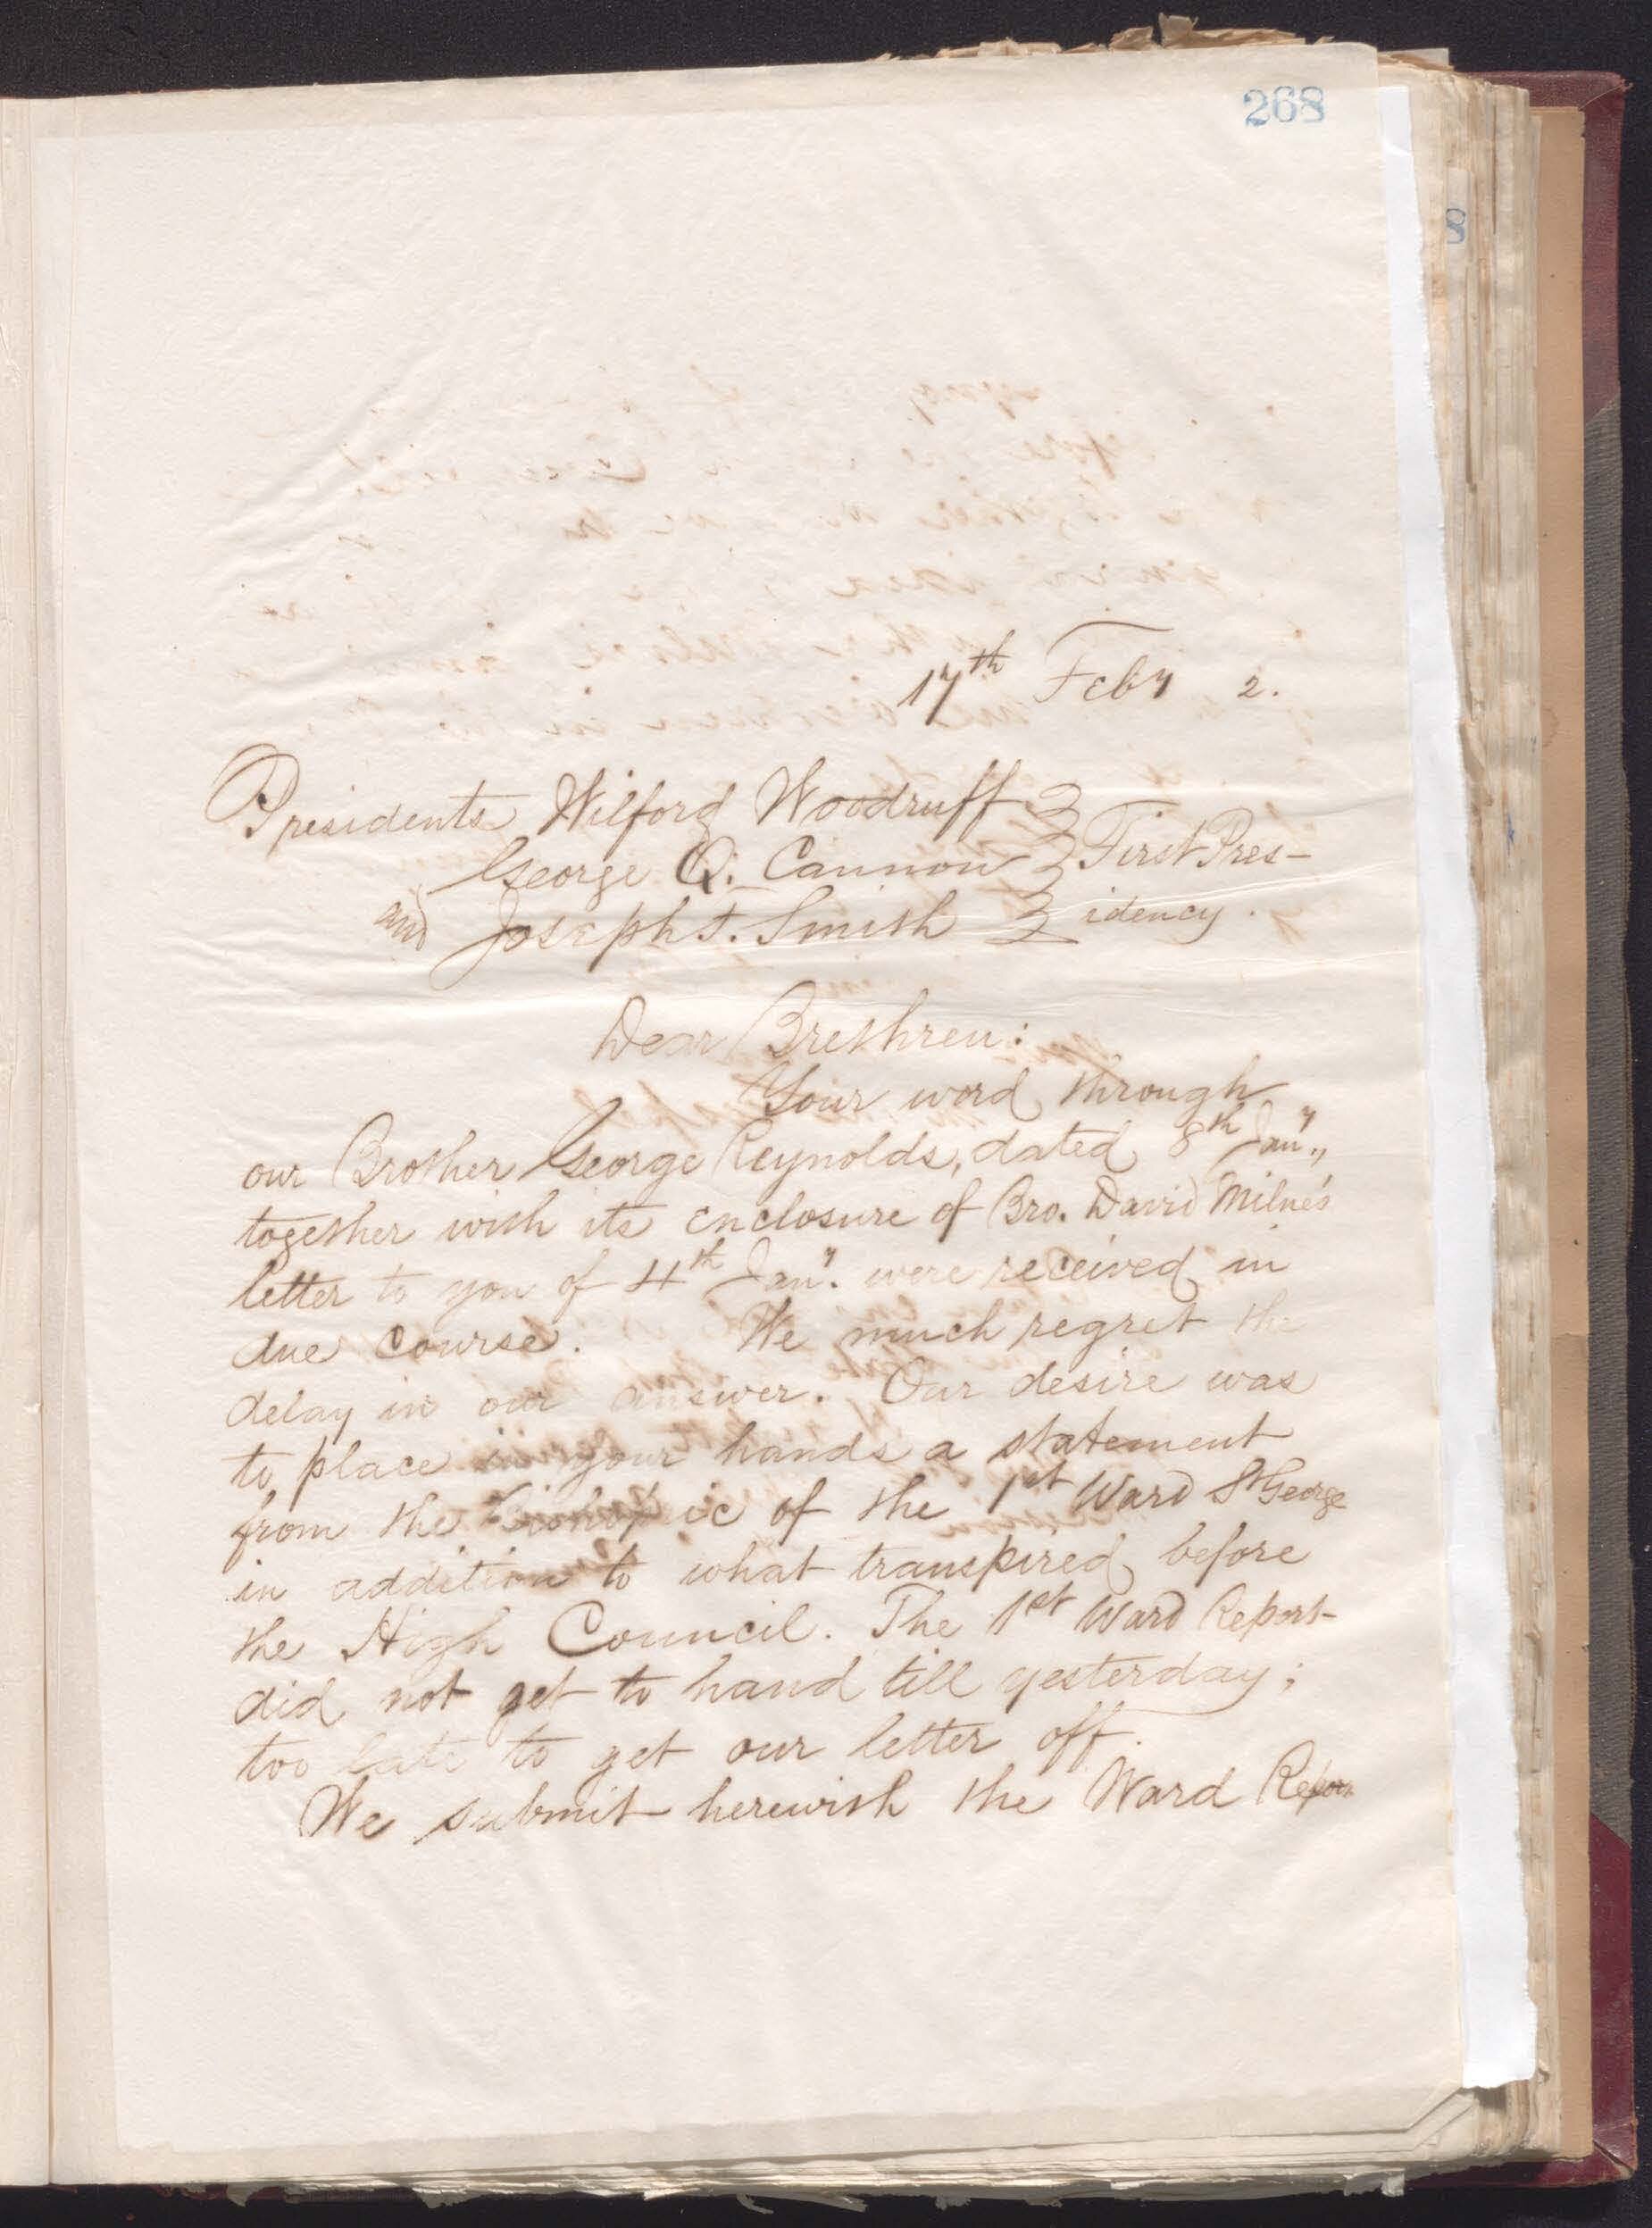 268
17th Feby 2.
Presidents Wilford Woodruff
George Q. Cannon } First Pres-
and Joseph F. Smith } idency.
Dear Brethren:
Your word through
our Brother George Reynolds, dated 8th Jany.,
together with its enclosure of Bro. David Milne's
letter to you of 4th Jany. were received in
due course. We much regret the
delay in our answer. Our desire was
to place in your hands a statement
from the Bishop'ic of the 1st Ward St George
in addition to what transpired before
the High Council. The 1st Ward Report
did not get to hand till yesterday;
too late to get our letter off.
We submit herewith the Ward Report